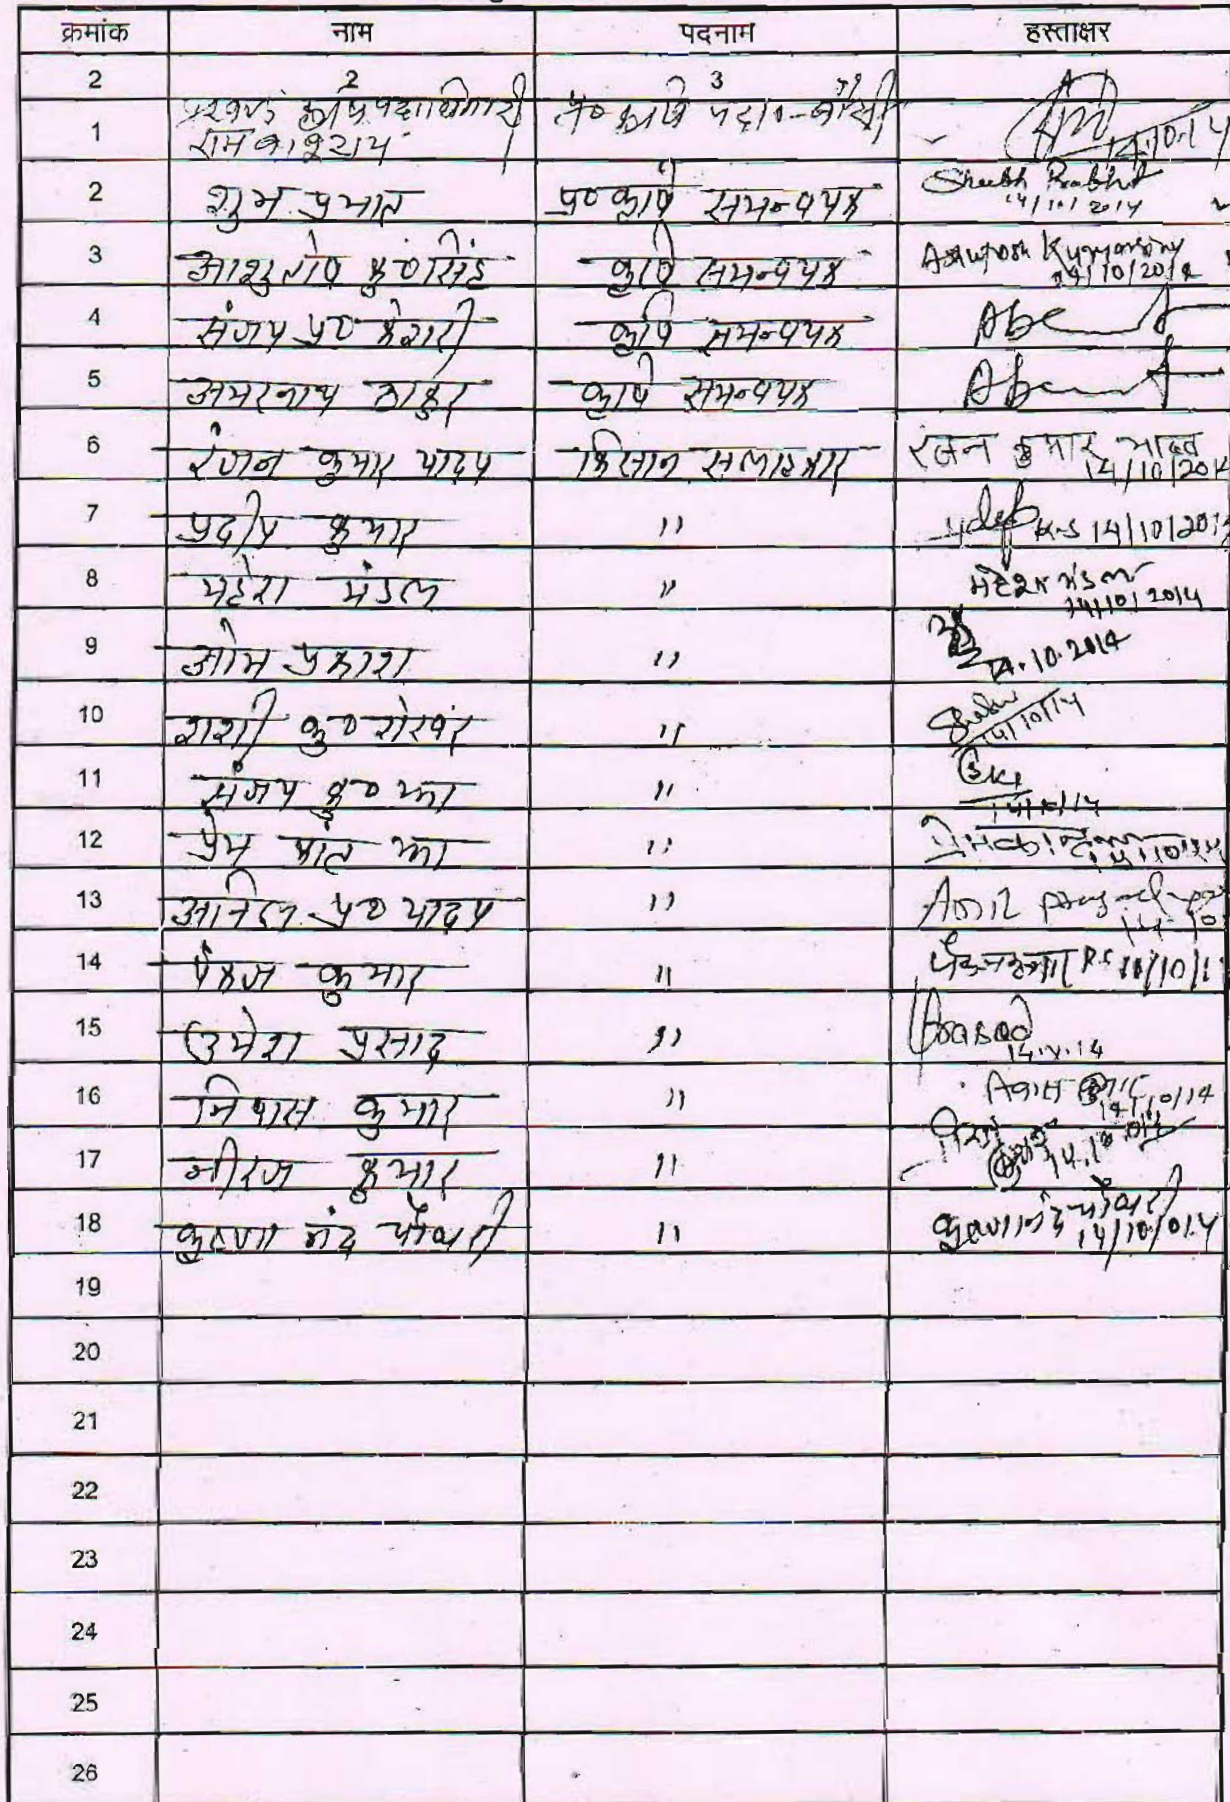 क्रमांक नाम पदनाम हस्ताक्षर
2 2 3 4
1 प्रखण्ड कृषि पदाधिकारी
राम बाबु राय प्र० कृषि पदा०-
14.10.14
2 शुभ प्रभात प्र० कृषि समन्वयक Shubh Prabhat
14/10/2014
3 आशुतोष कु० सिंह कृषि समन्वयक Ashutosh Kumar
14/10/2014
4 संजय प्र० केशरी कृषि समन्वयक Absent
5 अमरनाथ ठाकुर कृषि समन्वयक Absent
6 रंजन कुमार यादव किसान सलाहकार रंजन कुमार यादव
14/10/2014
7 प्रदीप कुमार " 14/10/2014
8 महेश मंडल " महेश मंडल
14/10/2014
9 ओम प्रकाश " 14.10.2014
10 शशी कु० शेखर " 14/10/14
11 संजय कु० झा "
14/10/14
12 प्रेम कांत झा "
13 अनिल प्र० यादव " Anil prasad
14-10
14 पंकज कुमार " पंकज कुमार
15 उमेश प्रसाद " Prasad
14.10.14
16 विकास कुमार " विकास कुमार
14/10/14
17 नीरज कुमार "
18 कृष्णा नंद चौधरी " कृष्णा नंद चौधरी
14/10/014
19
20
21
22
23
24
25
26